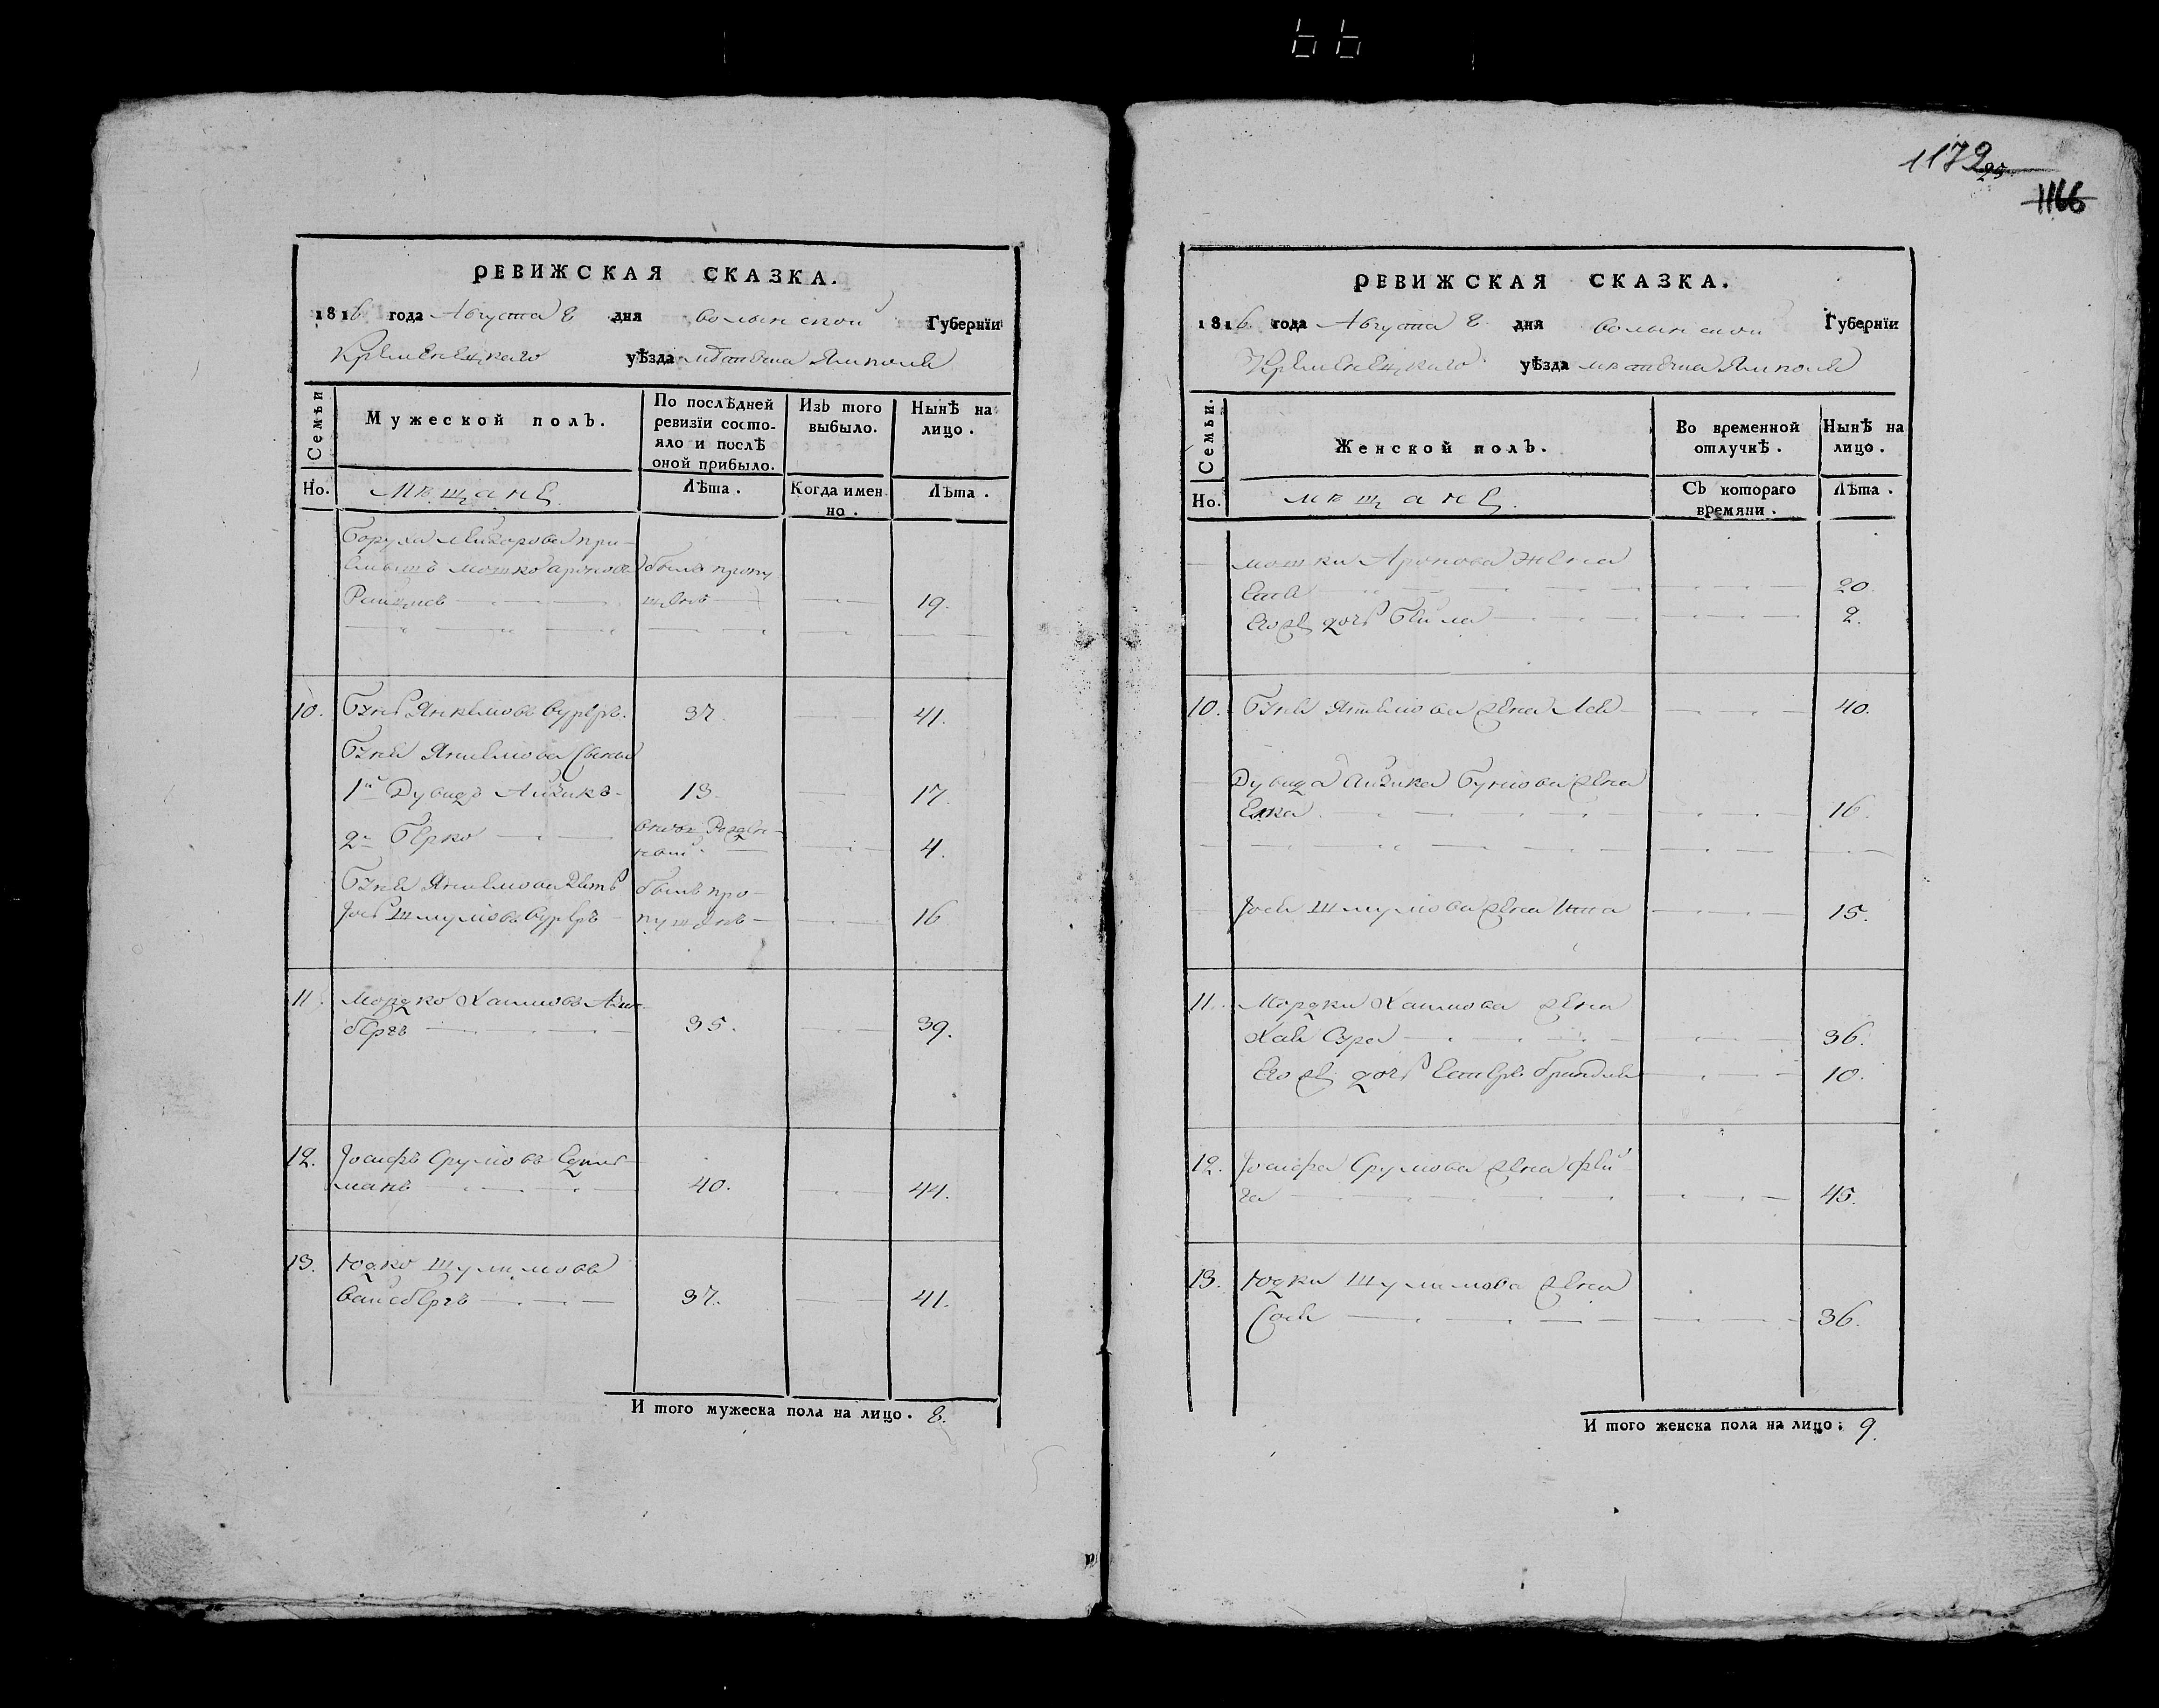 66
1172 95
1166
РЕВИЖСКАЯ СКАЗКА.
1816 года Августа 8 дня волынской Губернїи
Кременецкаго уѣзда мѣстечка Ямполя
Семьи
Мужеской полъ.
По послѣдней ревизїи состо-
яло и послѣ
оной прибыло.
Изъ того выбыло.
Нынѣ на лицо.
Но. мѣщане
Лѣта.
Когда имен
но.
Лѣта.
Боруха при-
емышъ мошко ароновъ былъ пропу
щенъ 19.
10. Янкелювъ 37. 41.
Янкелюва сыны
1й Дувидъ Айзикъ 13. 17.
2й Берко вновь рожден-
ный 4.
Янкелюва зять былъ про-
Шмулювъ пущенъ 16
11. Мордко Хаимовъ
бергъ 35. 39.
12. Іосифъ Срулювъ
манъ 40. 44.
13. Юдко Шулимовъ
Вайсбергъ 37. 41.
И того мужеска пола на лицо. 8.
РЕВИЖСКАЯ СКАЗКА.
1816 года Августа 8 дня волынской Губернїи
Кременецкаго уѣзда мѣстечка Ямполя
Семьи.
Женской полъ.
Во временной
отлучкѣ.
Нынѣ на
лицо.
Но. мѣщане.
Съ котораго
времяни.
Лѣта.
мошки Аронова жена
20.
Его же дочь Бейла 2.
10. Янкелюва жена Лея 40.
Дувида Айзика Бунюва жена
Елка 16.
Шмулюва жена Ита 15.
11. Мордки Хаимова жена
Хая Сура 36.
Его же дочь Естеръ Бриндля 10.
12. Іосифа Срулюва жена Фей-
га 45.
13. Юдки Шулимова жена
Сося 36.
И того женска пола на лицо: 9.